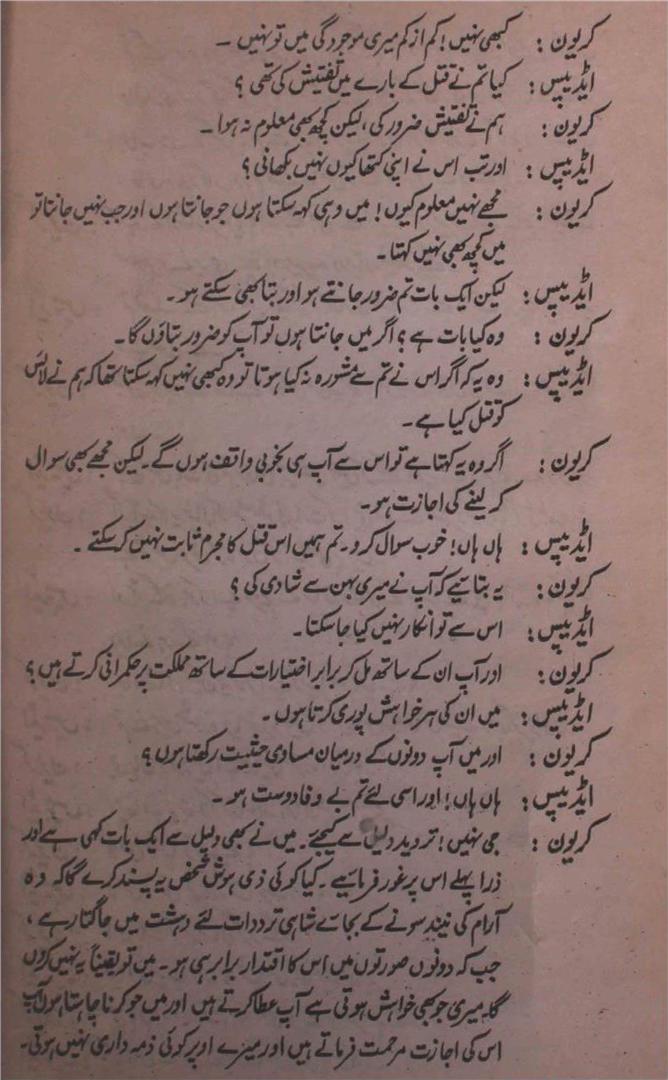 کریون : کبھی نہیں! کم از کم میری موجودگی میں تو نہیں ۔
ایڈیپس : کیا تم نے قتل کے بارے میں تفتیش کی تھی ؟
کریون : ہم نے تفتیش ضرور کی ، لیکن کچھ بھی معلوم نہ ہوا ۔
ایڈیپس : اور تب اس نے اپنی کتھا کیوں نہیں بکھانی ؟
کریون : مجھے نہیں معلوم کیوں! میں وہی کہہ سکتا ہوں جو جانتا ہوں اور جب نہیں جانتا تو
میں کچھ بھی نہیں کہتا ۔
ایڈیپس : لیکن ایک بات تم ضرور جانتے ہو اور بتا بھی سکتے ہو ۔
کریون : وہ کیا بات ہے ؟ اگر میں جانتا ہوں تو آپ کو ضرور بتاؤں گا ۔
ایڈیپس : وہ یہ کہ اگر اس نے تم سے مشورہ نہ کیا ہوتا تو وہ کبھی نہیں کہہ سکتا تھا کہ ہم نے لائس
کو قتل کیا ہے ۔
کریون : اگر وہ یہ کہتا ہے تو اس سے آپ ہی بخوبی واقف ہوں گے ۔ لیکن مجھے بھی سوال
کر لینے کی اجازت ہو ۔
ایڈیپس : ہاں ہاں! خوب سوال کرو ۔ تم ہمیں اس قتل کا مجرم ثابت نہیں کر سکتے ۔
کریون : یہ بتایئے کہ آپ نے میری بہن سے شادی کی ؟
ایڈیپس : اس سے تو انکار نہیں کیا جا سکتا ۔
کریون : اور آپ ان کے ساتھ مل کر برابر اختیارات کے ساتھ مملکت پر حکمرانی کرتے ہیں ؟
ایڈیپس : میں ان کی ہر خواہش پوری کرتا ہوں ۔
کریون : اور میں آپ دونوں کے درمیان مساوی حیثیت رکھتا ہوں ؟
ایڈیپس : ہاں ہاں! اور اسی لئے تم بے وفا دوست ہو ۔
کریون : جی نہیں! تردید دلیل سے کیجئے ۔ میں نے بھی دلیل سے ایک بات کہی ہے اور
ذرا پہلے اس پر غور فرمایئے ۔ کیا کوئی ذی ہوش شخص یہ پسند کرے گا کہ وہ
آرام کی نیند سونے کے بجائے شاہی ترددات لئے دہشت میں جاگتا رہے ،
جب کہ دونوں صورتوں میں اس کا اقتدار برابر ہی ہو ۔ میں تو یقیناً یہ نہیں کروں
گا ۔ میری جو بھی خواہش ہوتی ہے آپ عطا کرتے ہیں اور میں جو کرنا چاہتا ہوں آپ
اس کی اجازت مرحمت فرماتے ہیں اور میرے اوپر کوئی ذمہ داری نہیں ہوتی ۔